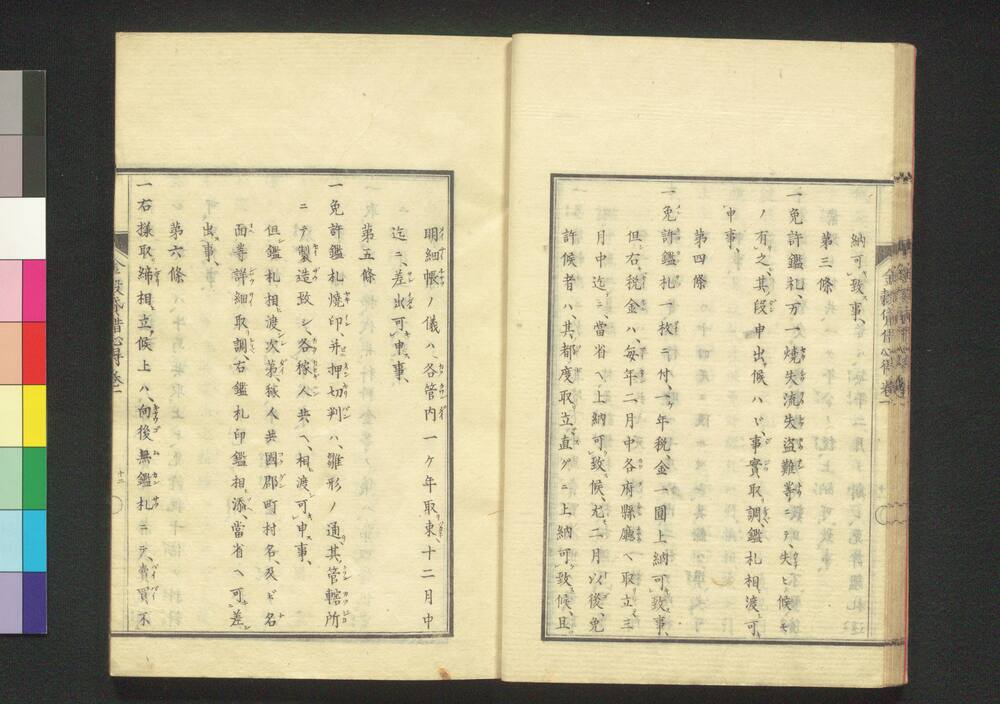 納可致事、
第三條
一免許鑑札、万一燒失流失盜難等ニヲ、失ヒ候ハヾ
ノ有之、其段申出候ハヾ事實取調鑑札相渡可
申事、
第四條
一免許鑑札一枚ニ付、一年税金一圓上納可致事、
但、右税金ハ、毎年二月中各府縣廳ヘ取立、三
月中迄ニ、當省ヘ上納可致候、尤二月以後免
許候者ハ、其都度取立直グニ上納可致候、且
明細帳ノ儀ハ、各管内一ケ年取束十二月中
迄ニ、差出可申事、
第五條
一免許鑑札燒印、并押切判ハ、雛形ノ通、其管轄所
ニテ製造致シ、各稼人共ヘ、相渡可申事、
但鑑札相渡次第、稼人共國郡町村名、及ビ名
面等詳細取調、右鑑札印鑑相添、當省ヘ可差
出事、
第六條
一右樣取締相立候上ハ、向後無鑑札ニテ、賣買不
金穀貸借心得 卷一
十二